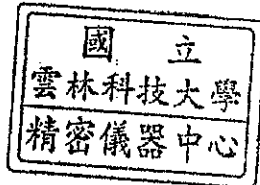 國立
雲林科技大學
精密儀器中心